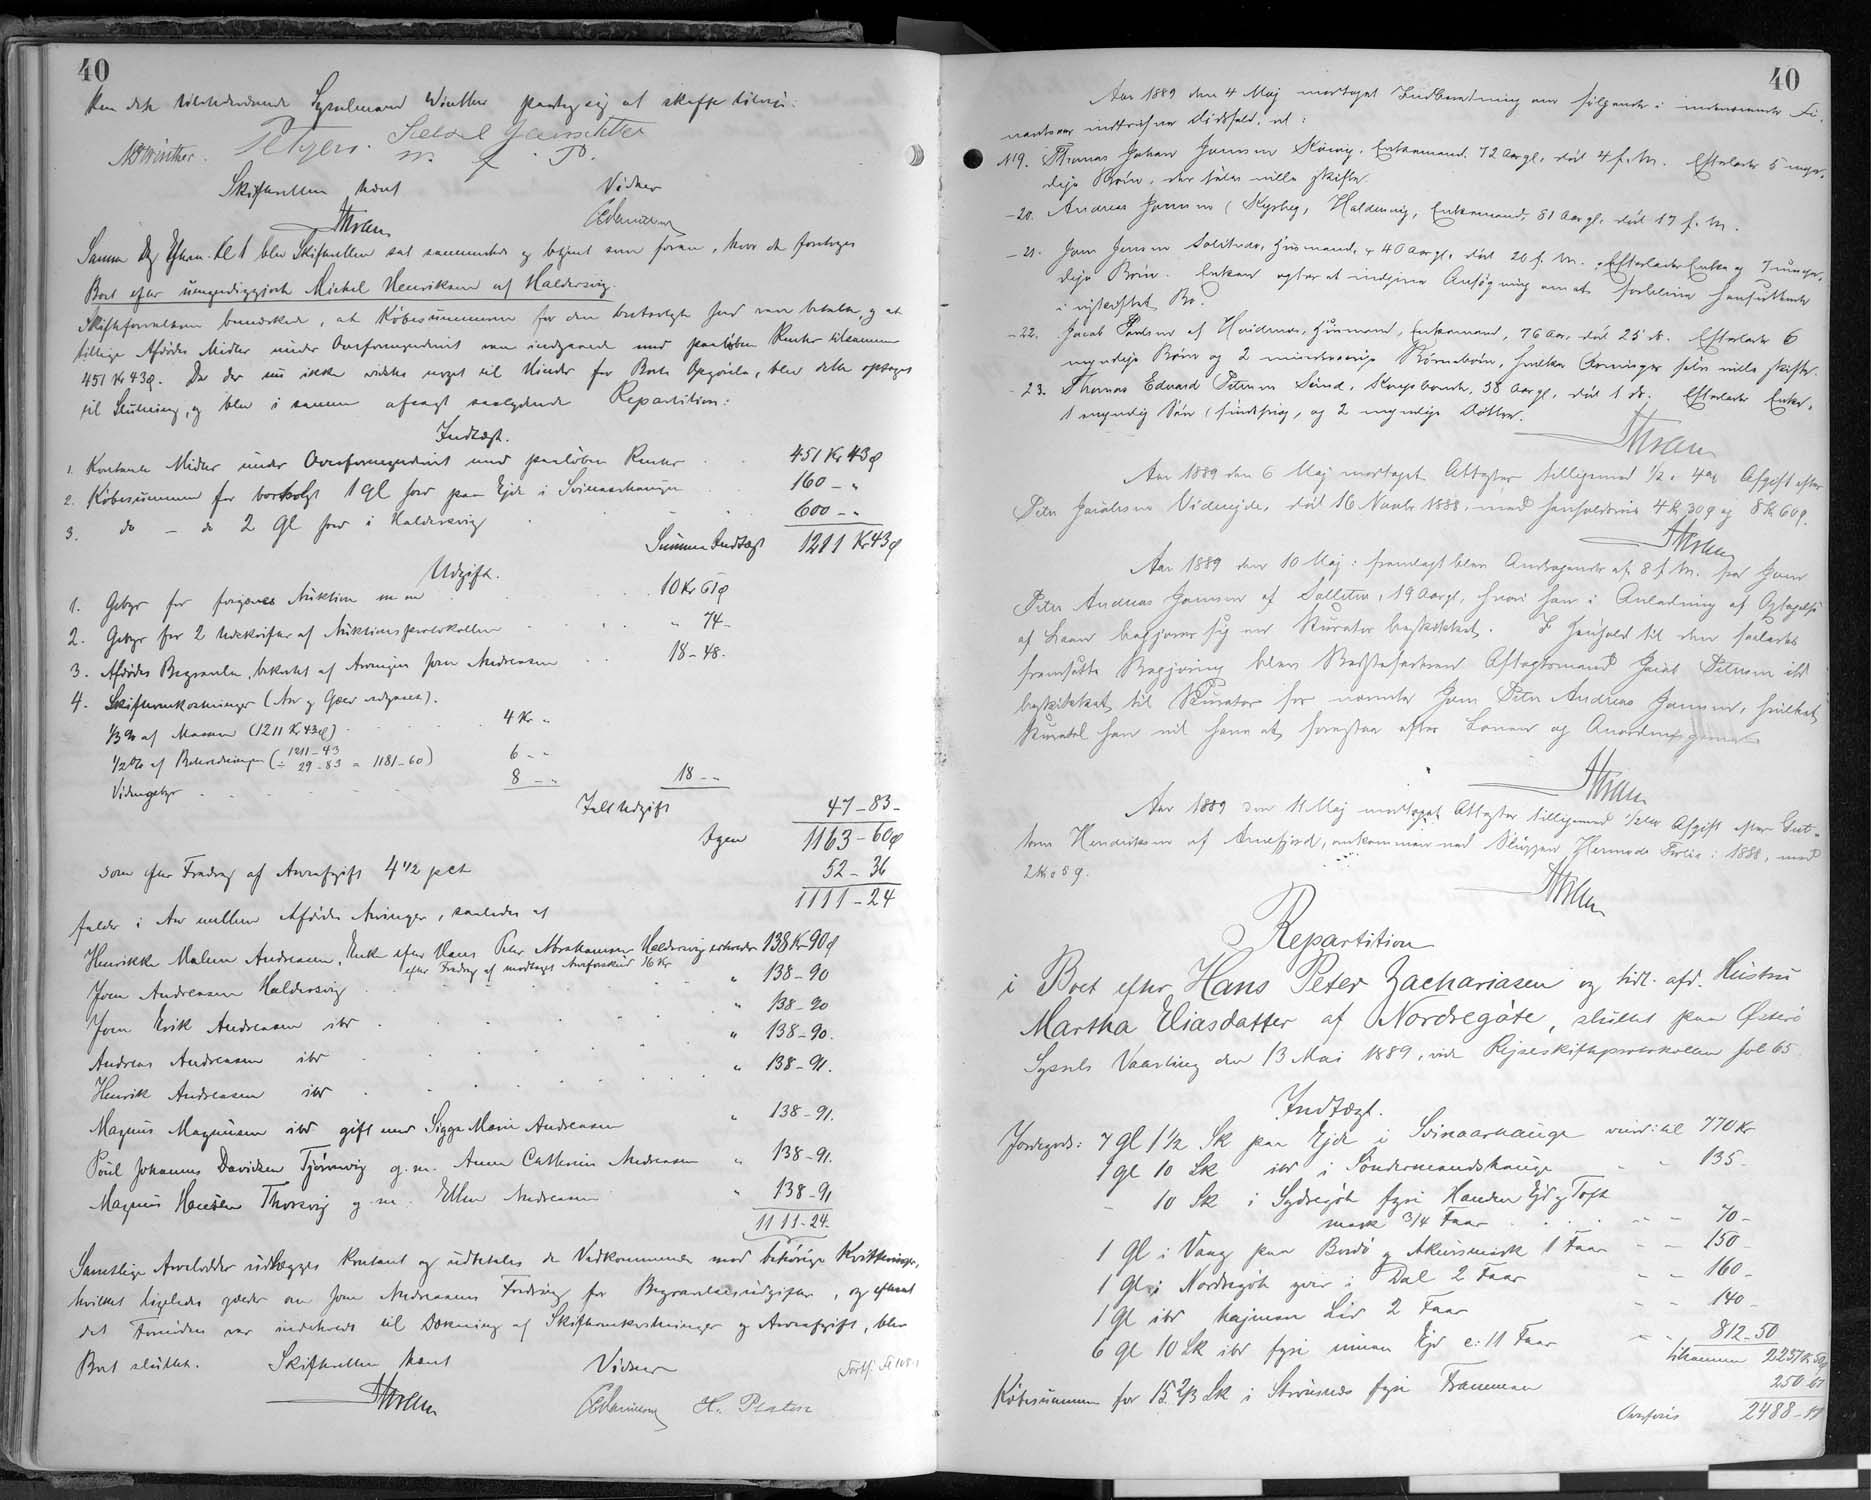 40
den dertil tilstedeværende Sysselmand Winther paatog sig at skaffe tilveie.
MWinther.
m. f. P.
Skifteretten hævet
Vidner
Samme Dag Efterm. Kl 1 blev Skifteretten sat sammesteds og betjent som foran, hvor da foretoges
Boet efter umyndiggjorte Michel Henriksen af Haldersvig.
Skifteforvalteren bemærkede, at Købesummerne for den bortsolgte Jord vare betalte, og at
tillige Afdødes Midler under Overformynderiet vare indgaaede med paaløbne Renter tilsammen
451 Kr 43 Ø. Da der nu ikke vidstes noget til Hinder for Boets Opgørelse, blev dette optaget
til Slutning, og blev i samme afsagt saalydende Repartition:
Indtægt.
1. Kontante Midler under Overformynderiet med paaløbne Renter 451 Kr 43 Ø
2. Købesummen for bortsolgt 1 Gl Jord paa Ejde i Svinaarhauge 160 - "
3. do - do 2 Gl Jord i Haldersvig 600 - "
Summa Indtægt 1211 Kr 43 Ø
Udgift.
1. Gebyr for Auktion m m 10 Kr 61 Ø
2. Gebyr for 2 Udskrifter af Auktionsprotokollen " 74 -
3. Afdødes Begravelse, bekostet af Arvingen Joen Andreasen 18 - 48.
4. Skifteomkostninger (Arv og Gæld udgaaet).
1/3 % af Massen (1211 Kr 43 Ø) 4 Kr "
1/2 % af Beholdningen (1211 - 43 ÷ 29 - 83 = 1181 - 60) 6 - "
Vidnegebyr 8 - " 18 - "
Ialt Udgift 47 - 83 -
Igen 1163 - 60 Ø
som efter Fradrag af Arveafgift 4 1/2 pct 52 - 36
1111 - 24
falder i Arv mellem Afdødes Arvinger, saaledes at
Henrikke Malene Andreasen, Enke efter Hans Peter Abrahamsen Haldersvig erholder 138 Kr 90 Ø
efter Fradrag af modtaget Arveforskud 16 Kr
Joen Andreasen Haldersvig " 138 - 90
Joen Erik Andreasen ibd " 138 - 90
Andreas Andreasen ibd " 138 - 90.
Henrik Andreasen ibd " 138 - 91.
Magnus Magnusen ibd gift med Sigga Marie Andreasen " 138 - 91.
Poul Johannes Davidsen Tjørnevig g. m. Anne Cathrine Andreasen " 138 - 91.
Magnus Hansen Thorsvig g. m. Ellen Andreasen " 138 - 91
1111 - 24.
Samtlige Arvelodder udlægges kontant og udbetales de Vedkommende mod behørige Kvitteringer,
hvilket ligeledes gælder om Joen Andreasens Fradrag for Begravelsesudgifter, og efterat
det Fornødne var indeholdt til Dækning af Skifteomkostninger og Arveafgift, blev
Boet sluttet. Skifteretten hævet Vidner
40
Aar 1889 den 4 Maj modtaget Indberetning om følgende i indenævnte Fi-
nantsaar indtrufne Dødsfald, at:
№ 19. Thomas Johan Joensen Enkemand, 72 Aar gl. død 4 f. M. Efterlader 5 myn-
dige Børn, der selv ville skifte.
- 20. Andreas Joensen Haldersvig, Enkemand, 81 Aar gl. død 17 f. M.
- 21. Joen Jensen Husmand, 40 Aar gl. død 20 f. M. Efterlader Enke og 7 umyn-
dige Børn. Enken agter at indgive Ansøgning om at forblive hensiddende
i uskiftet Bo.
- 22. Jacob Husmand, Enkemand, 76 Aar, død 25 ds. Efterlader 6
myndige Børn og 2 mindreaarige Børnebørn, hvilke Arvinger selv ville skifte.
- 23. Thomas Edvard Petersen Sund, Kongsbonde, 58 Aar gl. død 1 ds. Efterlader Enke,
1 myndig Søn og 2 myndige Døttre.
Aar 1889 den 6 Maj modtaget Attester tilligemed 1/2 & 4 % Afgift efter
Peter Jacobsen Viderejde, død 16 Novbr 1888, med henholdsvis 4 Kr 30 Ø og 8 Kr 60 Ø.
Aar 1889 den 10 Maj: fremlagt blev Andragende af 8 f. M. fra Joen
Peter Andreas Joensen af 19 Aar gl., hvori han i Anledning af Optagelse
af Laan begjærer sig en Kurator beskikket. I Henhold til den saaledes
fremsatte Begjæring blev Bedstefaderen Aftægtsmand Jacob Petersen ibd
beskikket til Kurator for nævnte Joen Peter Andreas Joensen, hvilket
Kuratel han vil have at forestaa efter Loven og Anordningerne.
Aar 1889 den 11 Maj modtaget Attester tilligemed 1/2 % Afgift efter Gut-
torm Hendriksen af Arnefjord, omkommen med Sluppen Hermode Forlis i 1888, med
2 Kr 08 Ø.
Repartition
i Boet efter Hans Peter Zachariasen og tidl. afd. Hustru
Martha Eliasdatter af Nordregøte, sluttet paa Østerø
Syssels Vaarting den 13 Mai 1889, vide Rejseskifteprotokollen fol 65.
Indtægt.
Jordegods: 7 Gl 1 1/2 Sk paa Ejde i Svinaarhauge vurd. til 770 Kr
1 Gl 10 Sk ibd i Søndermandshauge " - 135 -
- 10 Sk i Sydregøte fyri Handan Ejd og Toft
mark 3/4 Faar " - 70 -
1 Gl i Vaag paa Bordø og Akursmark 1 Faar " - 150 -
1 Gl i Nordregøte yvir i Dal 2 Faar " - 160 -
1 Gl ibd hajman Lid 2 Faar " - 140 -
6 Gl 10 Sk ibd fyri innan Ejd c: 11 Faar " - 812 - 50
tilsammen 2237 Kr 50
Købesummen for 15 2/3 Sk i Strønæs fyri Framman 250 - 67
Overføres 2488 - 17